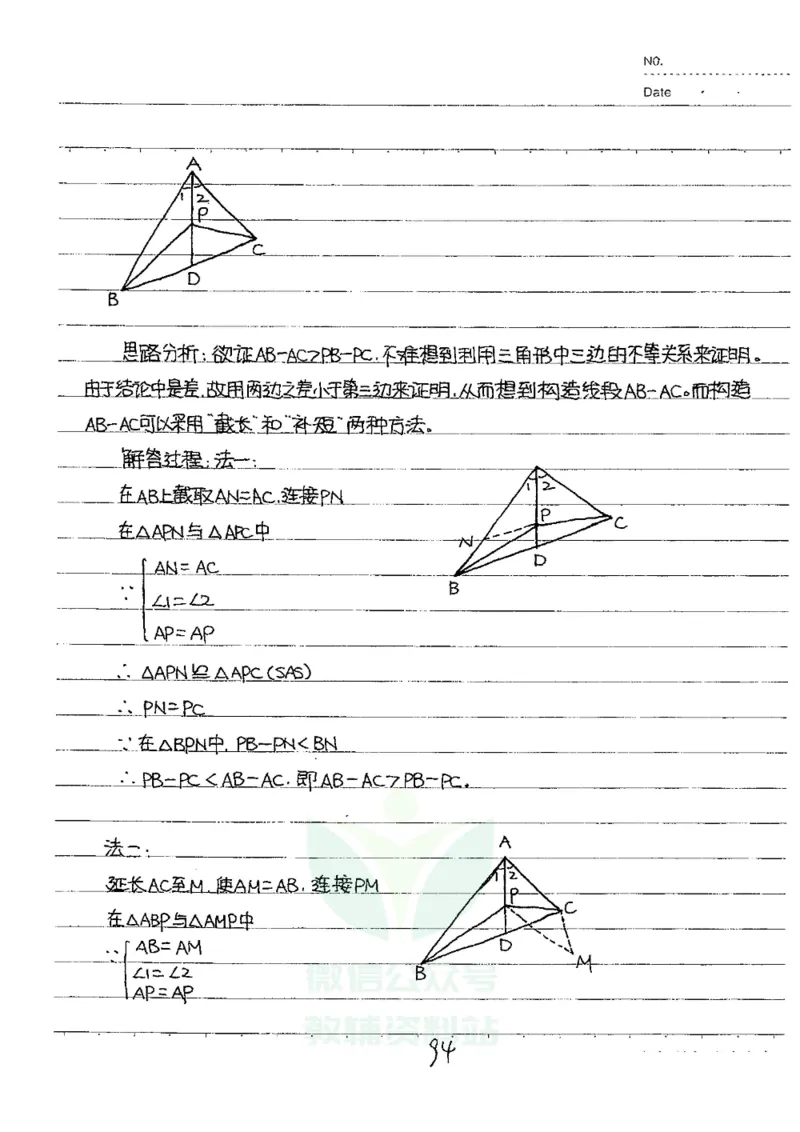 NO.
Date
A
1 2
P
C
D
B
思路分析:欲证AB-AC>PB-PC,不难想到利用三角形中三边的不等关系来证明。
由于结论中是差,故用两边之差小于第三边来证明,从而想到构造线段AB-AC。而构造
AB-AC可以采用"截长"和"补短"两种方法。
解答过程:法一:
在AB上截取AN=AC,连接PN
在△APN与△APC中
∵ { AN=AC
∠1=∠2
AP=AP
1 2
P
C
N
D
B
∴ △APN≌△APC(SAS)
∴ PN=PC
∵在△BPN中,PB-PN<BN
∴PB-PC<AB-AC,即AB-AC>PB-PC.
法二:
延长AC至M,使AM=AB,连接PM
在△ABP与△AMP中
∵ { AB=AM
∠1=∠2
AP=AP
A
1 2
P
C
D
B
M
微信公众号
教辅资料站
94